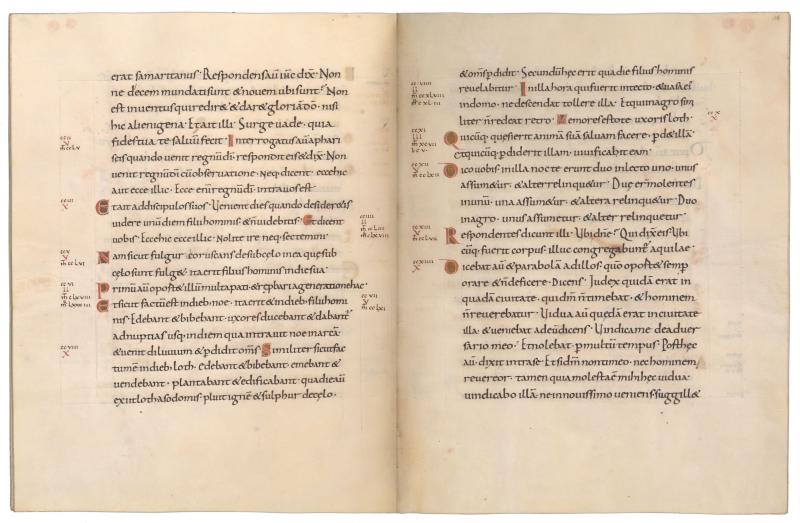 erat samaritanus· Respondens aū ihc dix̄· Non
ne decem mundati sunt & novem ubi sunt? Non
est inventus qui redir& & dar& gloriā dō· nisi
hic alienigena· Et ait illi· Surge uade· quia
fides tua te saluū fecit· Interrogatus aū a phari
seis quando uenit regnū dī· respondit eis & dix̄· Non
uenit regnū dī cū obseruatione· Neq dicent· ecce hic
aut ecce illic· Ecce enī regnū dī intra uos est
Et ait ad discipulos suos· Uenient dies quando desideretis
uidere unū diem filii hominis & n̄ uidebitis· Et dicent
uobis· Ecce hic ecce illic· Nolite ire neq sectemini·
Nam sicut fulgur coruscans de sub celo in ea que sub
celo sunt fulg& ita erit filius hominis in die sua·
Primū aū oport& illū multa pati & reprobari a generatione hac·
Et sicut factū est in dieb· noe· ita erit & in dieb· filii homi
nis· Edebant & bibebant· uxores ducebant & dabant
ad nuptias usq; in diem qua intrauit noe in arcā·
& uenit diluuium & pdidit om̄s· Similiter sicut fac
tum ē in dieb· loth· edebant & bibebant· emebant &
uendebant· plantabant & edificabant· qua die aū
exiit loth a sodomis· pluit ignē & sulphur de celo·
& om̄s pdidit· Secundū hec erit qua die filius hominis
reuelabitur· In illa hora qui fuerit in tecto· & uasa ei
in domo· ne descendat tollere illa· Et qui in agro sim
liter n̄ redeat retro· Memores estote· uxoris loth·
Quicūq; quesierit animā suā saluam facere· pd& illā·
Et quicūq; pdiderit illam· uiuificabit eam·
Dico uobis· in illa nocte erunt duo in lecto uno· unus
assum&ur· & alter relinqu&ur· Due erunt molentes
in unū· una assum&ur· & altera relinqu&ur· Duo
in agro· unus assumetur· & alter relinquetur·
Respondentes dicunt illi· Ubi dn̄e· Qui dix̄ eis· Ubi
cūq; fuerit corpus· illuc congregabunt & aquilae·
Dicebat aū & parabolā ad illos· quō oport& semp
orare & n̄ deficere· Dicens· Judex quidā erat in
quadā ciuitate· qui dm̄ n̄ timebat· & hominem
n̄ reuerebatur· Uidua aū quedā erat in ciuitate
illa· & ueniebat ad eū dicens· Uindica me de aduer
sario meo· Et nolebat p multū tempus· Post hec
aū· dixit intra se· Etsi dm̄ non timeo· nec hominem
reuereor· tamen quia molesta ē mihi hec uidua·
uindicabo illā· ne in nouissimo ueniens suggill&